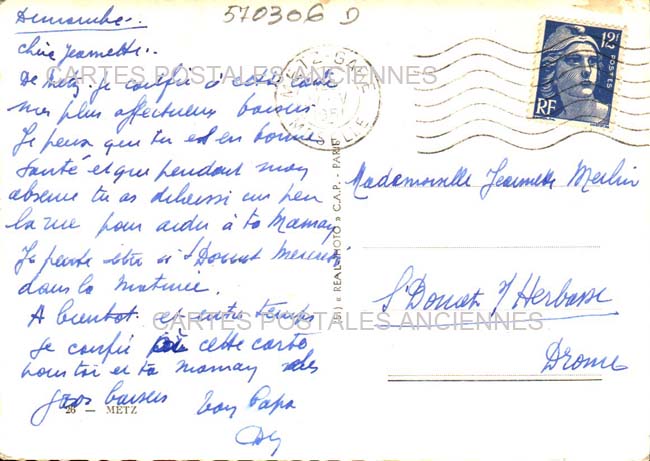 570306 D
Dimanche.
Chère Jeannette.
De Metz je confie à cette carte
mes plus affectueux baisers
Je pense que tu es en bonne
santé et que pendant mon
absence tu as un peu
la rue pour aider à ta Maman
Je pense être à St Donat
dans la matinée.
A bientot et entre temps
Je confie cette carte
pour toi et ta maman des
gros baisers Ton Papa
26 — METZ
« REAL-PHOTO » C.A.P. - PARIS
METZ GARE
MOSELLE
12F
POSTES
RF
Mademoiselle Jeannette Merlin
St Donat s/ Herbasse
Drome
CARTES POSTALES ANCIENNES
CARTES POSTALES ANCIENNES